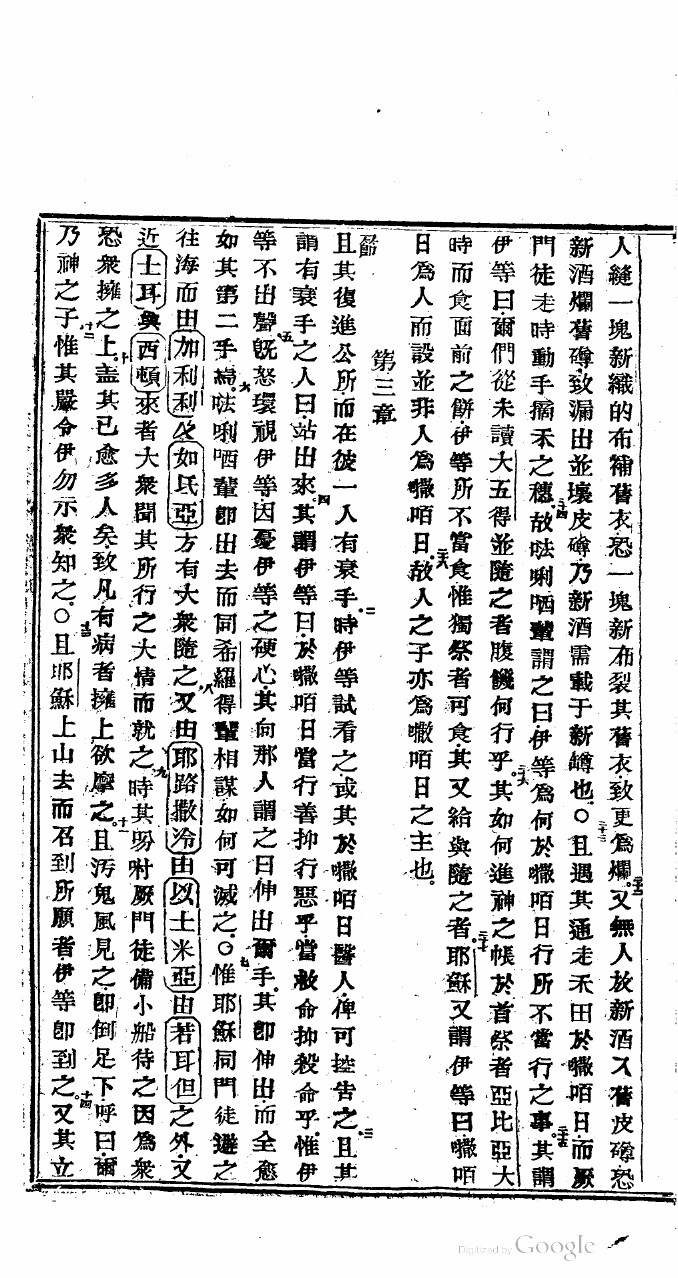 人縫一塊新織的布補舊衣恐一塊新布裂其舊衣致更為爛二十二又無人放新酒入舊皮罇恐
新酒爛舊罇致漏出並壞皮罇乃新酒需載于新罇也○二十三且遇其通走禾田於𡃤咟日而厥
門徒走時動手擂禾之穗二十四故𠵽唎哂輩謂之曰伊等為何於𡃤咟日行所不當行之事二十五其謂
伊等曰爾們從未讀大五得並隨之者腹饑何行乎二十六其如何進神之帳於首祭者亞比亞大
時而食面前之餅伊等所不當食惟獨祭者可食其又給與隨之者二十七耶穌又謂伊等曰𡃤咟
日為人而設並非人為𡃤咟日二十八故人之子亦為𡃤咟日之主也
第三章
節
且其復進公所而在彼一人有衰手二時伊等試看之或其於𡃤咟日醫人俾可控告之三且其
謂有衰手之人曰站出來四其謂伊等曰於𡃤咟日當行善抑行惡乎當救命抑殺命乎惟伊
等不出聲五既怒環視伊等因憂伊等之硬心其向那人謂之曰伸出爾手其即伸出而全愈
如其第二手焉六𠵽唎哂輩即出去而同希羅得輩相謀如何可滅之○七惟耶穌同門徒避之
往海而由加利利及如氐亞方有大衆隨之八又由耶路撒冷由以土米亞由若耳但之外又
近土耳與西頓來者大衆聞其所行之大情而就之九時其吩咐厥門徒備小船待之因為衆
恐衆擁之上十盖其已愈多人矣致凡有病者擁上欲摩之十一且汚鬼風見之即倒足下呼曰爾
乃神之子十二惟其嚴令伊勿示衆知之○十三且耶穌上山去而召到所願者伊等即到之十四又其立
Digitized by Google